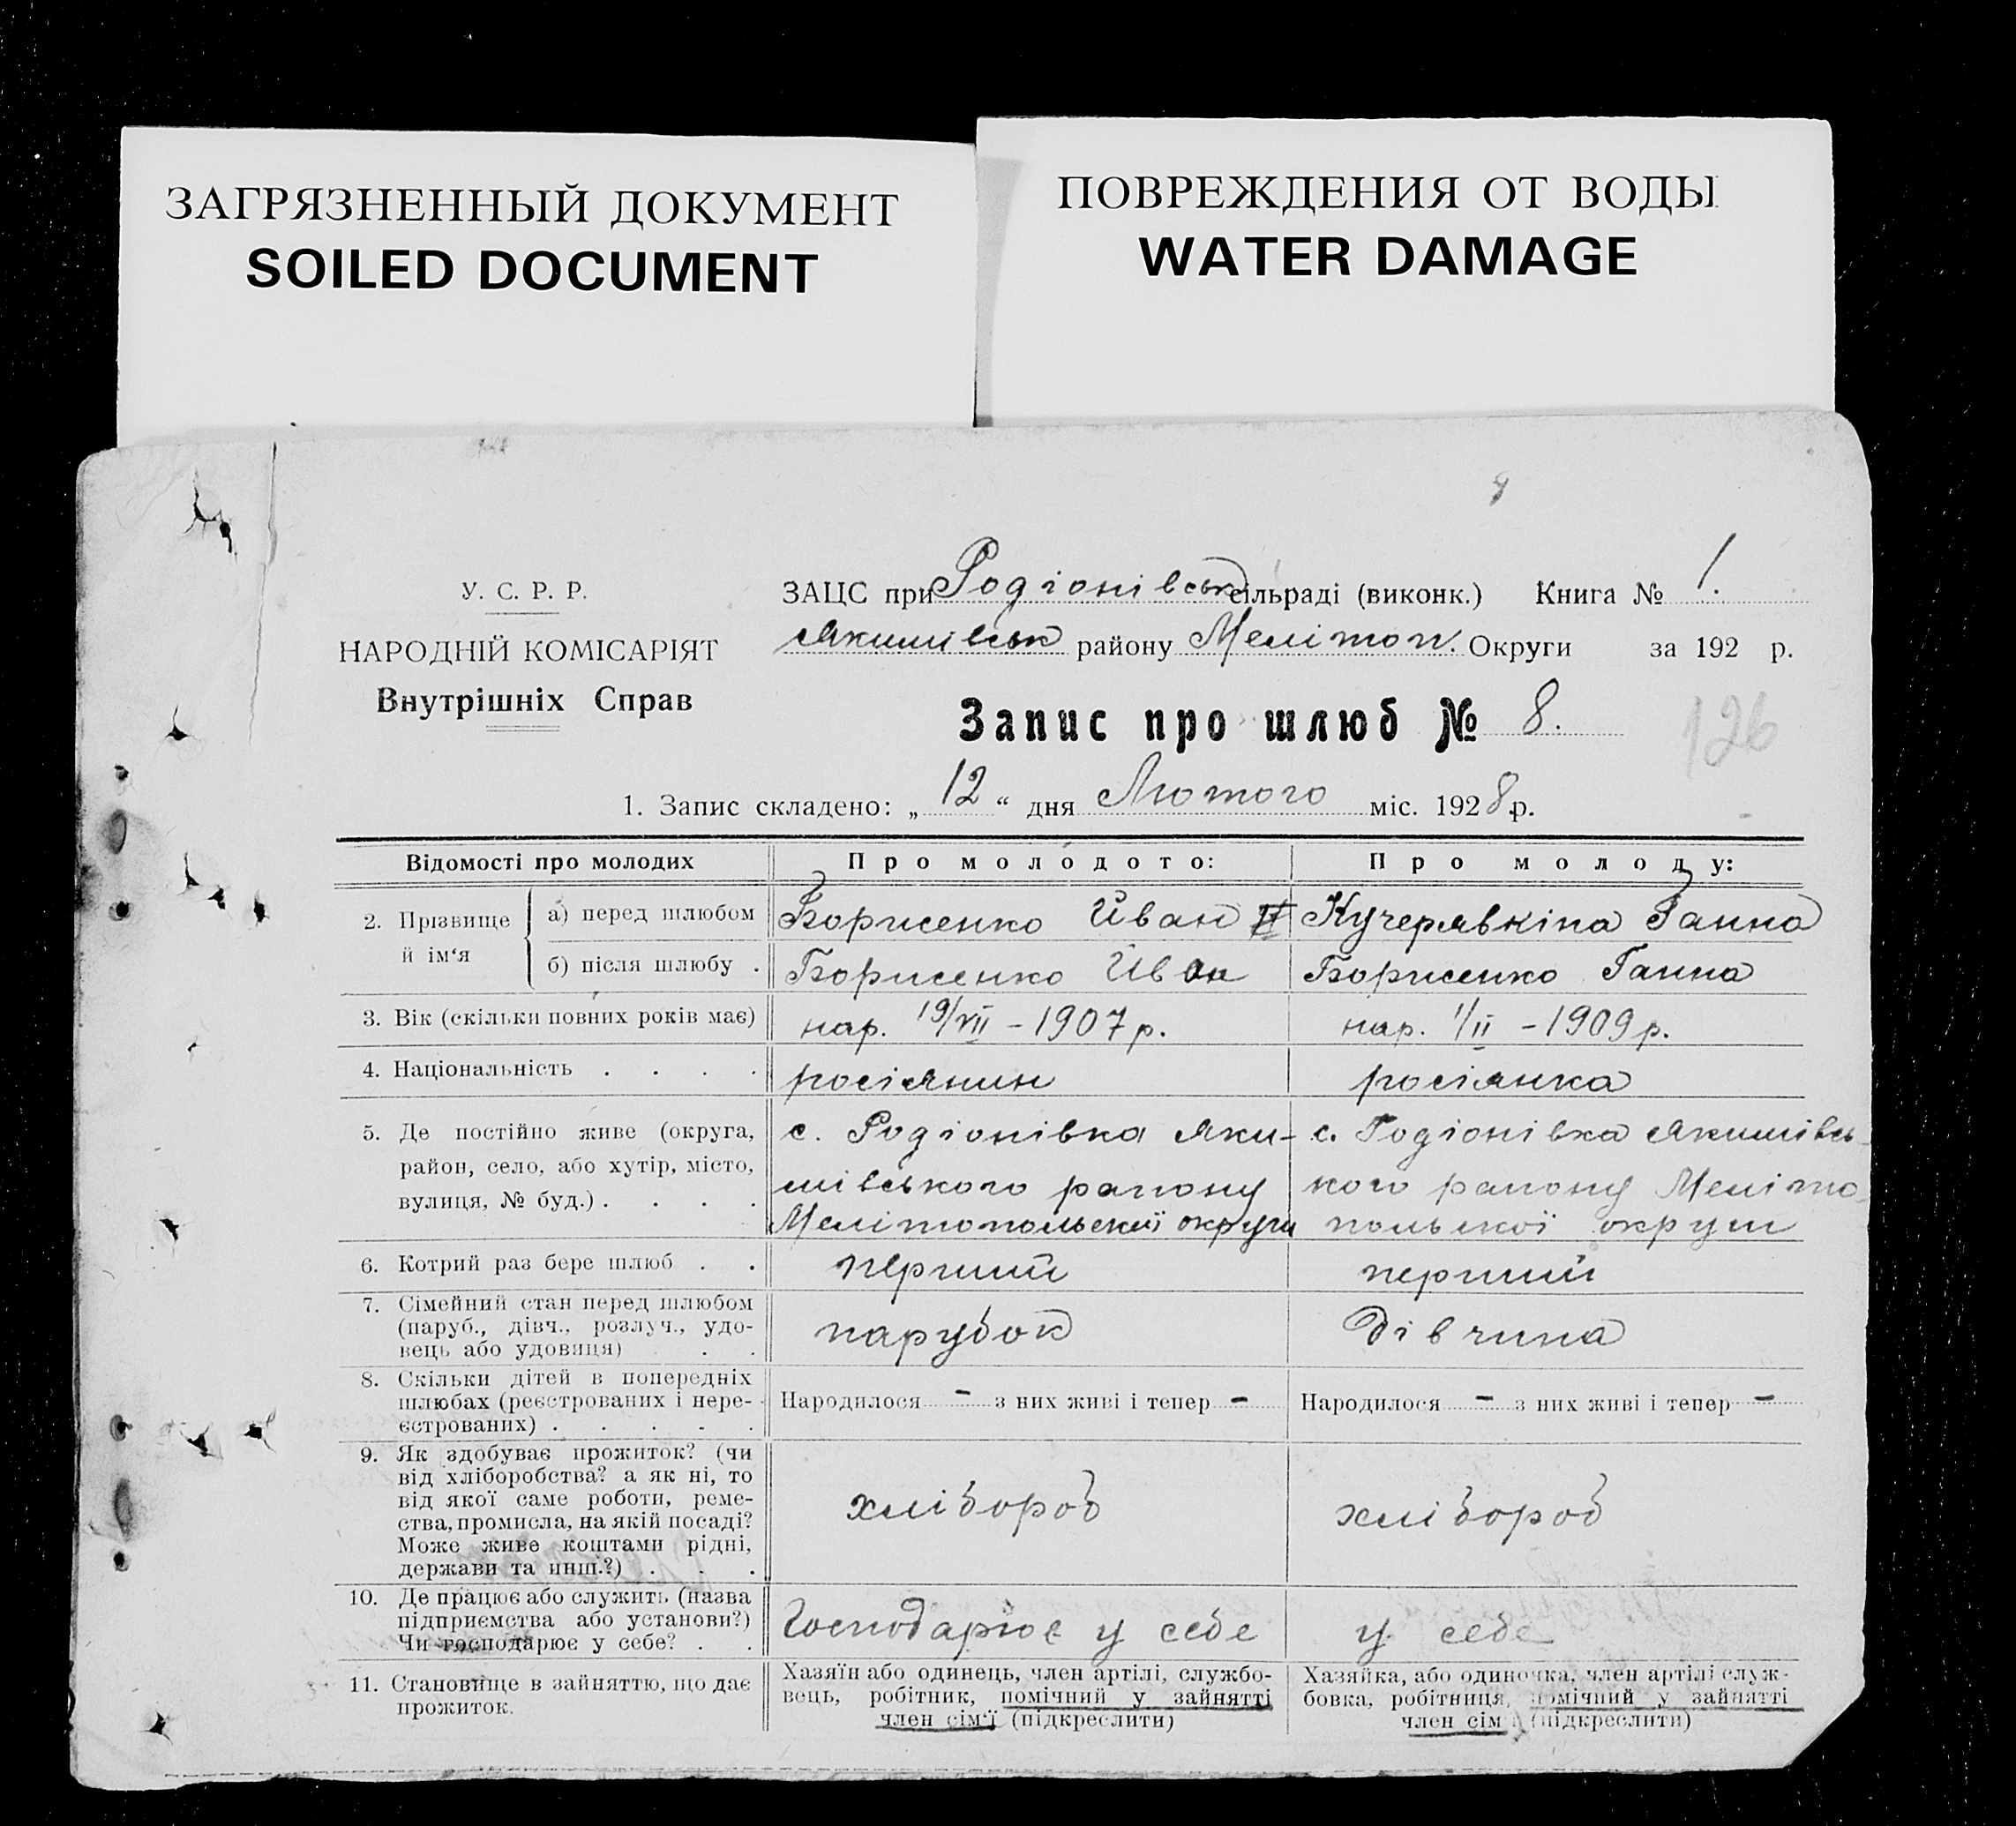 ЗАГРЯЗНЕННЫЙ ДОКУМЕНТ
SOILED DOCUMENT
ПОВРЕЖДЕНИЯ ОТ ВОДЫ
WATER DAMAGE
У. С. Р. Р.
НАРОДНІЙ КОМІСАРІЯТ
Внутрішніх Справ
ЗАЦС при Родіонівськ сільраді (виконк.) Книга № 1.
Якимівськ району Мелітоп. Округи за 192 р.
Запис про шлюб № 8.
126
1. Запис складено: „ 12 “ дня Лютого міс. 1928 р.
Відомості про молодих
Про молодого:
Про молоду:
2. Прізвище й ім‘я
а) перед шлюбом
Борисенко Йван II
Кучерявкіна Ганна
б) після шлюбу .
Борисенко Йван
Борисенко Ганна
3. Вік (скільки повних років має)
нар. 19/VII – 1907 р.
нар. 1/II – 1909 р.
4. Національність . . . .
росіянин
росіянка
5. Де постійно живе (округа,
район, село, або хутір, місто,
вулиця, № буд.) . . . .
с. Родіонівка Яки-
мівського району
Мелітопольської округи
с. Родіонівка Якимівсь-
кого району Меліто-
польської округи
6. Котрий раз бере шлюб . .
перший
перший
7. Сімейний стан перед шлюбом
(паруб., дівч., розлуч., удо-
вець або удовиця) . .
парубок
Дівчина
8. Скільки дітей в попередніх
шлюбах (реєстрованих і нере-
єстрованих) . . . . .
Народилося – з них живі і тепер –
Народилося – з них живі і тепер –
9. Як здобуває прожиток? (чи
від хліборобства? а як ні, то
від якої саме роботи, реме-
ства, промисла, на якій посаді?
Може живе коштами рідні,
держави та инш.?) . . .
хлібороб
хлібороб
10. Де працює або служить (назва
підприємства або установи?)
Чи господарює у себе? . .
Господарює у себе
у себе
11. Становище в зайняттю, що дає
прожиток.
Хазяїн або одинець, член артілі, службо-
вець, робітник, помічний у зайнятті
член сім‘ї (підкреслити)
Хазяйка, або одиночка, член артілі служ-
бовка, робітниця, помічний у зайнятті
член сім‘ї (підкреслити)